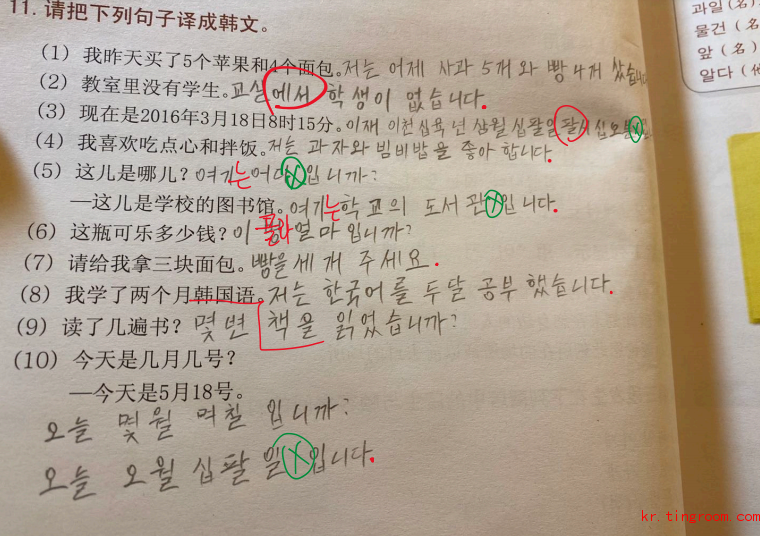 11. 请把下列句子译成韩文。
(1) 我昨天买了5个苹果和4个面包。저는 어제 사과 5개와 빵 4개 샀습니다
(2) 教室里没有学生。교실에서 학생이 없습니다.
(3) 现在是2016年3月18日8时15分。이재 이천십육년 삼월 십팔일 팔시 십오분
(4) 我喜欢吃点心和拌饭。저는 과자와 빔비밥을 좋아합니다.
(5) 这儿是哪儿? 여기는 어디X입니까?
—这儿是学校的图书馆。여기는 학교의 도서관X입니다.
(6) 这瓶可乐多少钱? 이 얼마입니까?
(7) 请给我拿三块面包。빵을 세개 주세요.
(8) 我学了两个月韩国语。저는 한국어를 두달 공부했습니다.
(9) 读了几遍书? 몇 번 책을 읽었습니까?
(10) 今天是几月几号?
—今天是5月18号。
오늘 몇월 며칠 입니까?
오늘 오월 십팔일X입니다.
过去(名)
物建(名)
앞(名)
알다(他
kr.tingroom.com